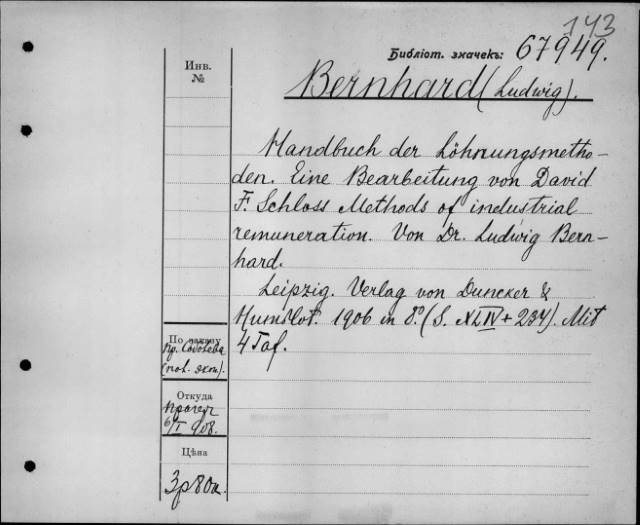 143
Библіот. значекъ: 67949.
Инв.
№
Bernhard (Ludwig).
Handbuch der Löhnungsmetho-
den. Eine Bearbeitung von David
F. Schloss Methods of industrial
remuneration. Von Dr. Ludwig Bern-
hard.
Leipzig. Verlag von Duncker &
Humblot. 1906 in 8°. (S. XLIV + 234). Mit
4 Taf.
По заказу
Пр.
Откуда
6/I 908.
Цѣна
3р 80к.